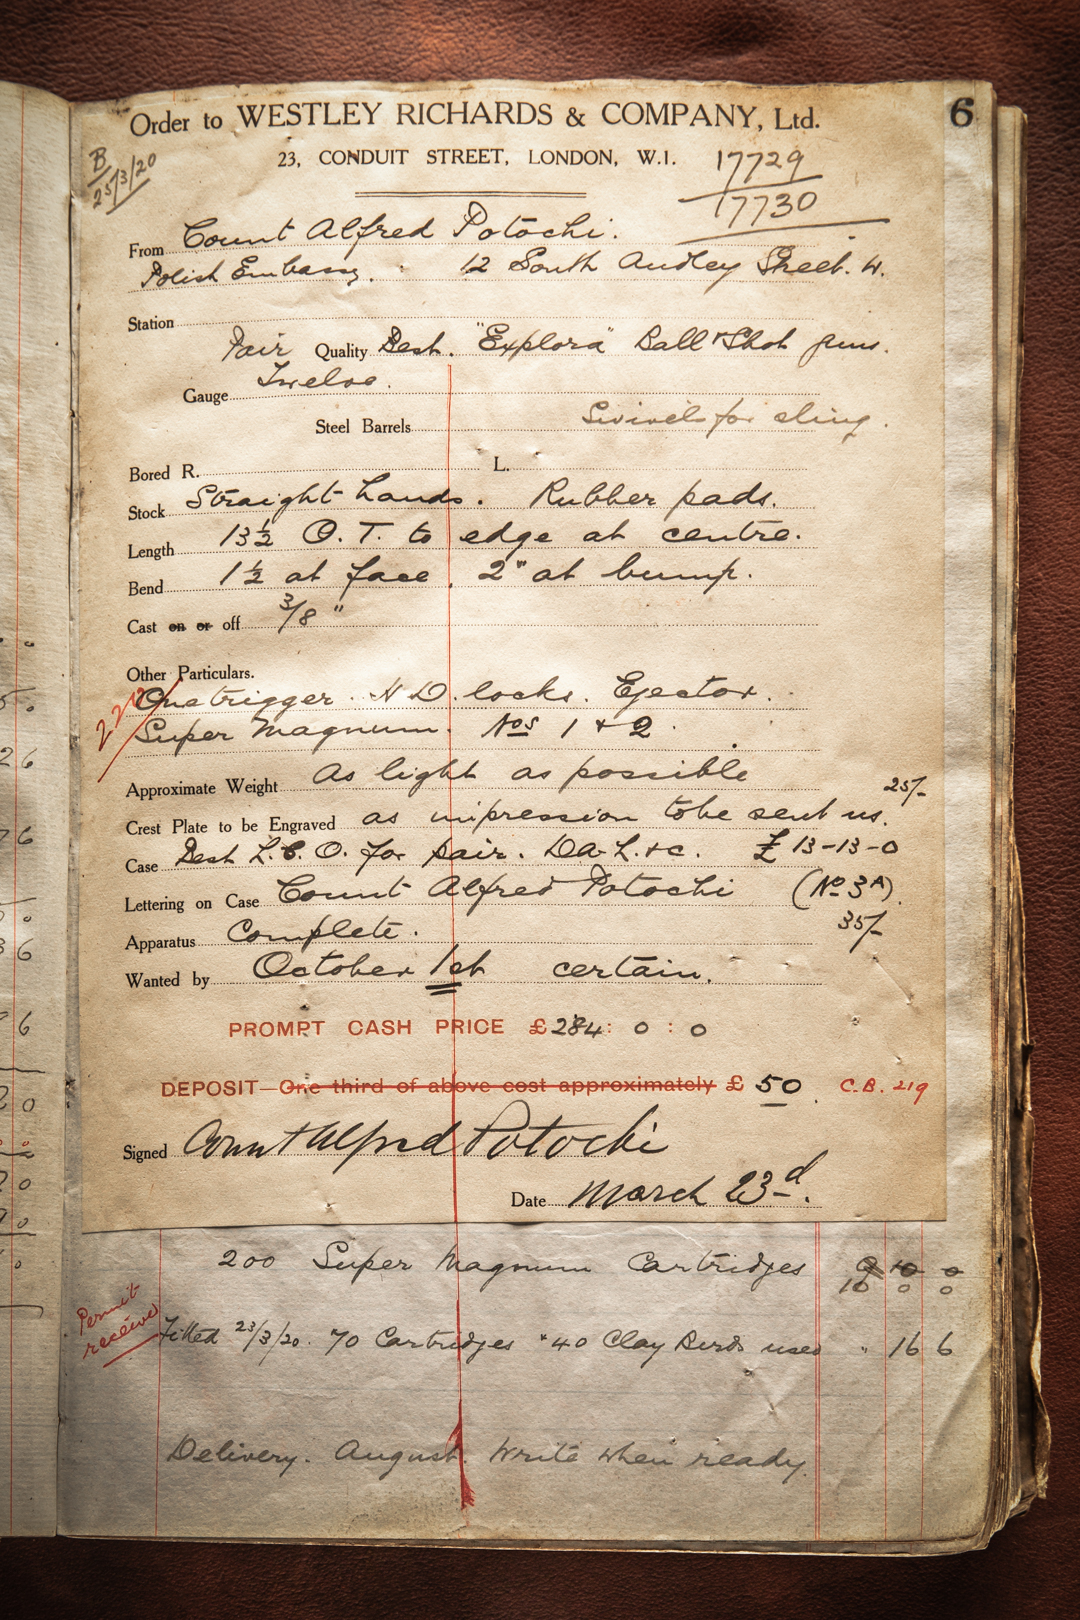 6
Order to WESTLEY RICHARDS & COMPANY, Ltd.
23, CONDUIT STREET, LONDON, W.1.
B
25/3/20
17729
17730
From Count Alfred Potochi.
Polish Embassy. 12 South Audley Street. W.
Station
Pair Quality Best. "Explora" Ball & Shot guns.
Gauge Twelve.
Steel Barrels Swivels for sling.
Bored R. L.
Stock Straight hands. Rubber pads.
Length 13½ O.T. to edge at centre.
Bend 1½ at face. 2" at bump.
Cast on or off 3/8"
Other Particulars.
Onetrigger. H D. locks. Ejector.
Super Magnum. Nos 1 & 2.
Approximate Weight As light as possible
25/-
Crest Plate to be Engraved as impression to be sent us.
Case Best L.C.O. for pair. Da. L. &c. £13-13-0
Lettering on Case Count Alfred Potochi (No 3A).
35/-
Apparatus Complete.
Wanted by October 1st certain.
PROMPT CASH PRICE £284: 0 : 0
DEPOSIT—One third of above cost approximately £ 50. C.B. 219
Signed Count Alfred Potochi
Date March 23d.
200 Super Magnum Cartridges 9 10 0
10 0 0
Permit
received
Fitted 23/3/20. 70 Cartridges & 40 Clay Birds used " 16 6
Delivery. August. Write when ready.